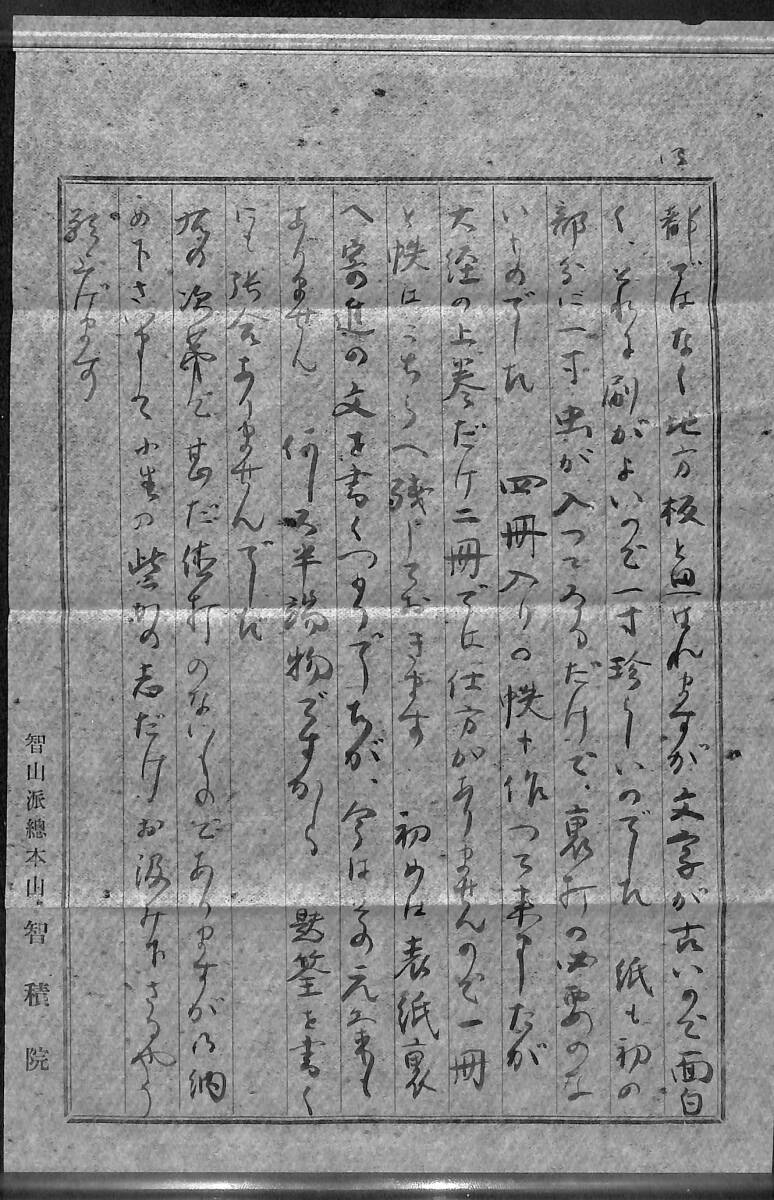 都ではなく地方板と思はれますが文字が古いので面白
く、それに刷がよいので一寸珍らしいのでした 紙も初の
部分に一寸虫が入つてゐるだけで、裏打の必要のな
いものでした 四冊入りの帙を作つて来ましたが
大経の上巻だけ二冊では仕方がありませんので一冊
と帙はこちらへ残しておきます 初めは表紙裏
へ寄進の文を書くつもりでしたが、今はその元気も
ありません 何しろ半端物ですから 悪筆を書く
にも張合ありませんでした
右の次第で甚だ体打のないものでありますが御納
め下さいまして小生の些かの志だけお汲み下さるやう
願上げます
智山派總本山 智積院